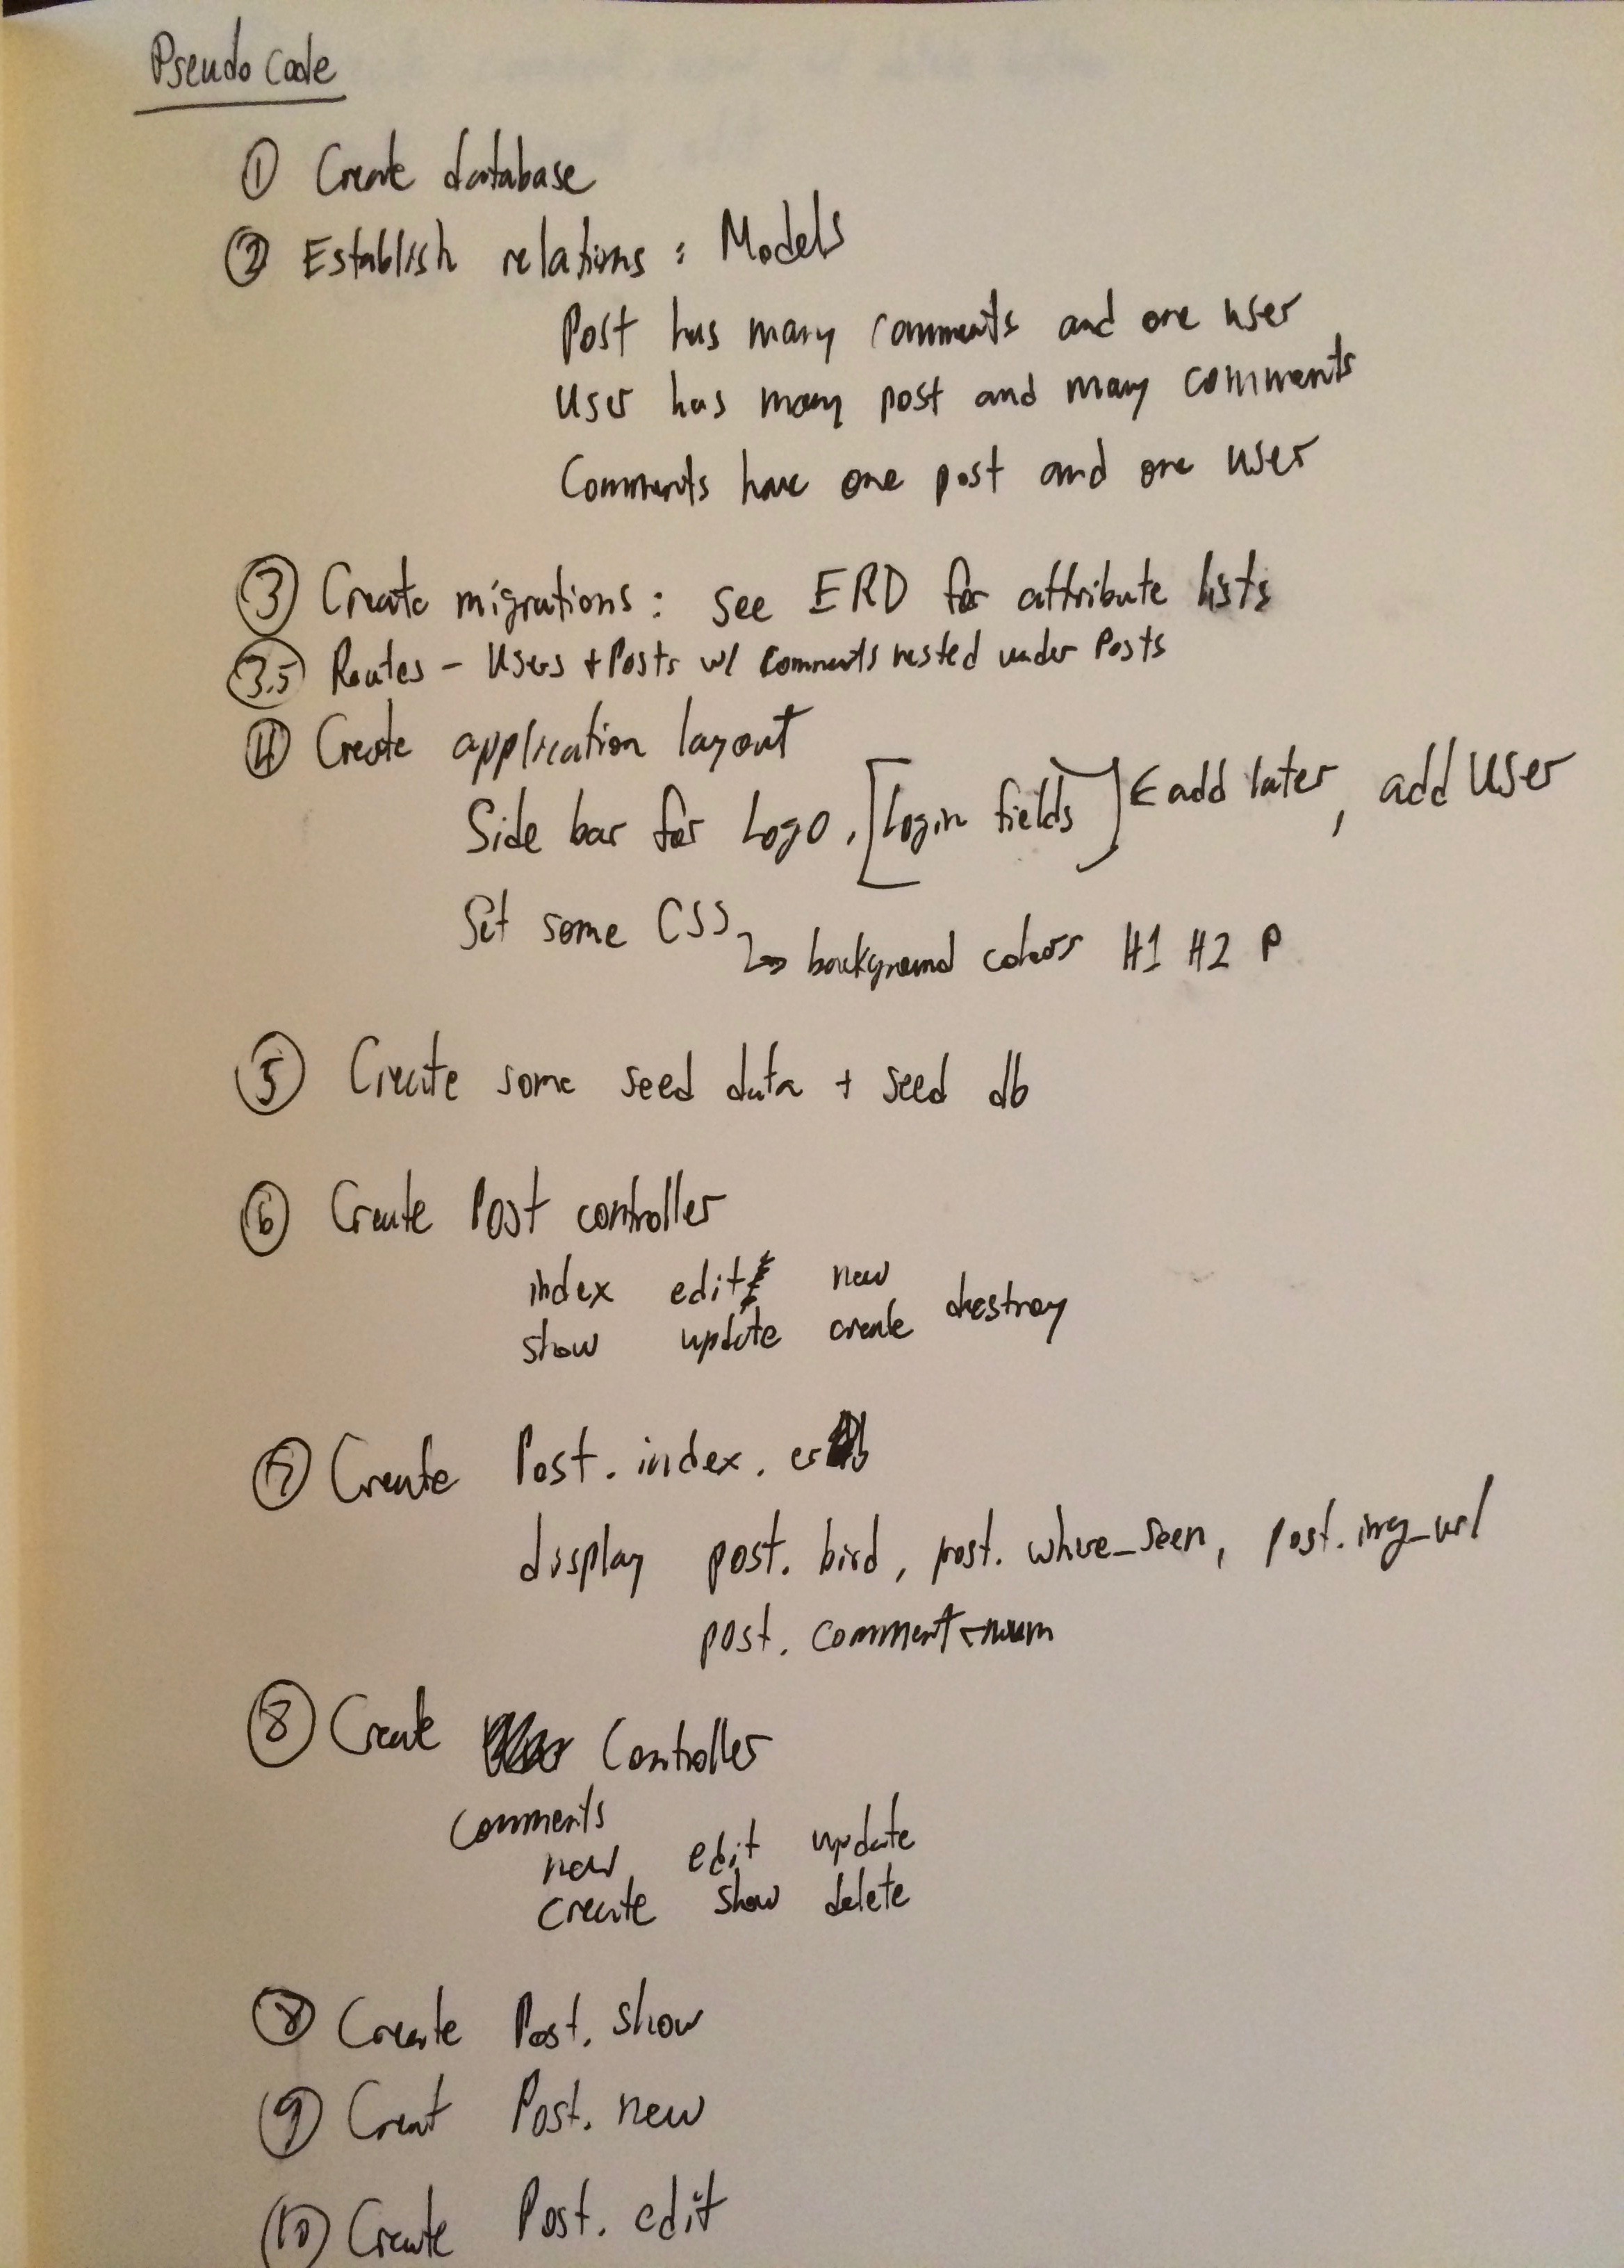 Pseudo Code
① Create database
② Establish relations : Models
Post has many comments and one user
User has many post and many comments
Comments have one post and one user
③ Create migrations: see ERD for attribute lists
3.5 Routes - Users + Posts w/ comments nested under Posts
④ Create application layout
Side bar for Logo, [Login fields] ← add later, add User
Set some CSS → background colors H1 H2 P
⑤ Create some seed data + seed db
⑥ Create Post controller
index edit new
show update create destroy
⑦ Create Post.index.erb
display post.bird, post.where_seen, post.img_url
post.comment_num
⑧ Create Controller
Comments
new edit update
create show delete
⑧ Create Post.show
⑨ Creat Post.new
⑩ Create Post.edit